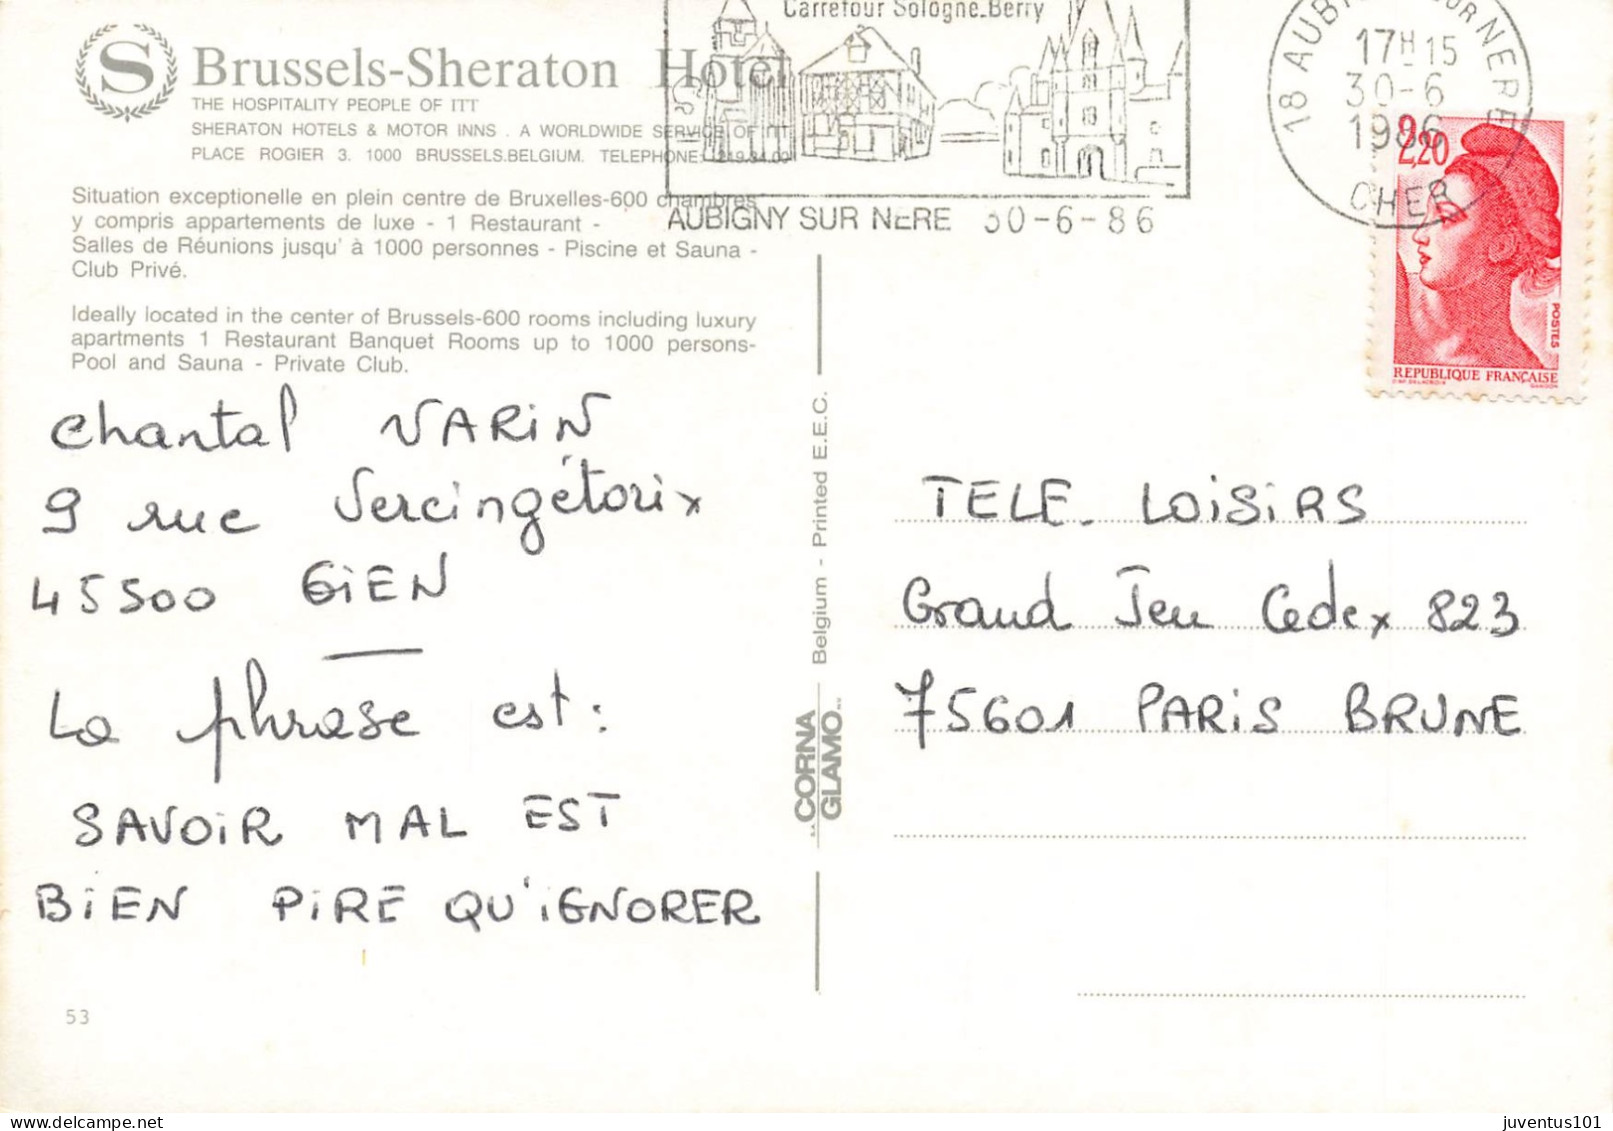 S
Brussels-Sheraton Hotel
THE HOSPITALITY PEOPLE OF ITT
SHERATON HOTELS & MOTOR INNS . A WORLDWIDE SERVICE OF ITT
PLACE ROGIER 3. 1000 BRUSSELS.BELGIUM. TELEPHONE:
Situation exceptionelle en plein centre de Bruxelles-600 chambres
y compris appartements de luxe - 1 Restaurant -
Salles de Réunions jusqu' à 1000 personnes - Piscine et Sauna -
Club Privé.
Ideally located in the center of Brussels-600 rooms including luxury
apartments 1 Restaurant Banquet Rooms up to 1000 persons-
Pool and Sauna - Private Club.
Carrefour Sologne.Berry
AUBIGNY SUR NERE 30-6-86
18 AUBIGNY SUR NERE
17H15
30-6
1986
CHER
2,20
POSTES
REPUBLIQUE FRANÇAISE
chantal VARIN
9 rue Vercingétorix
45500 GIEN
La phrase est :
SAVOIR MAL EST
BIEN PIRE QU'IGNORER
53
Belgium - Printed E.E.C.
"CORNA
GLAMO"
TELE. LOISIRS
Grand Jeu Cedex 823
75601 PARIS BRUNE
juventus101